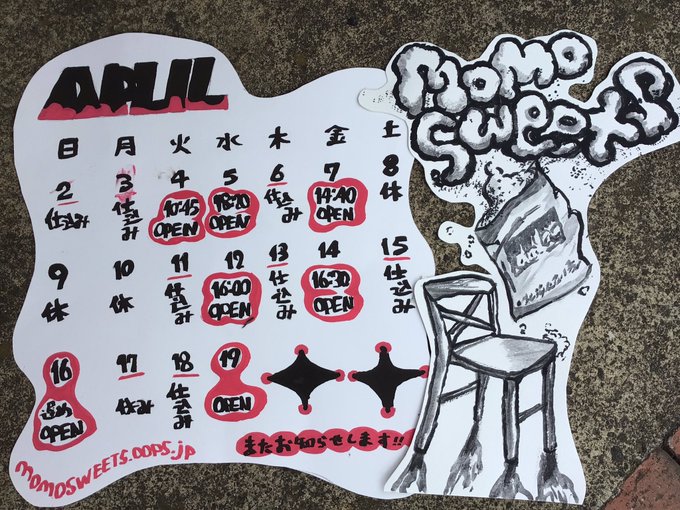 APRIL
MOMO
SWEETS
日 月 火 水 木 金 土
2 3 4 5 6 7 8
仕込み 仕込み 10:45 OPEN OPEN 仕込み 14:40 OPEN 休
9 10 11 12 13 14 15
休 休 仕込み 16:00 OPEN 仕込み 16:30 OPEN 仕込み
16 17 18 19
OPEN 休み 仕込み OPEN
またお知らせします!!
MOMOSWEETS.OOPS.jp